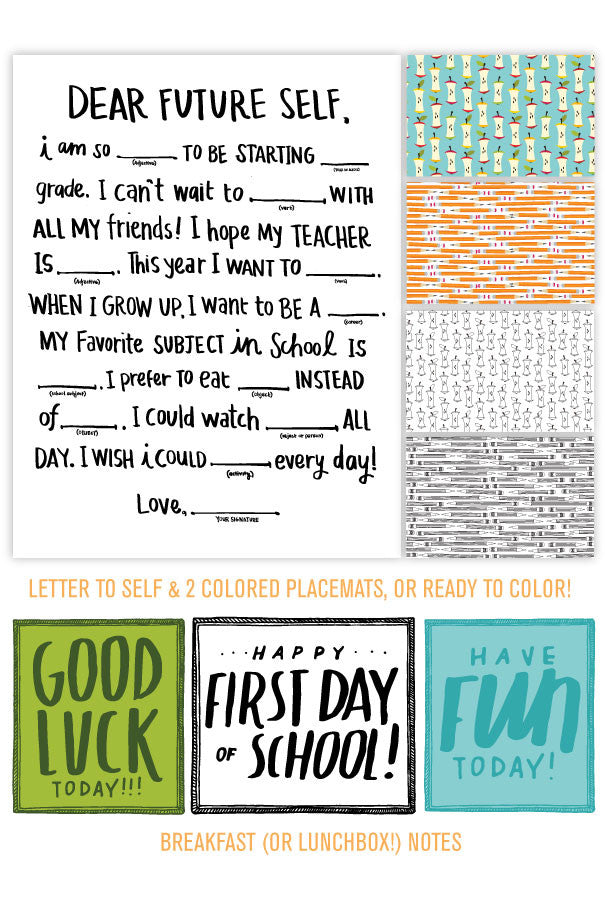 DEAR FUTURE SELF,
i am so ____ TO BE STARTING ____
(adjective)
grade. I can't wait to ____ WITH
(verb)
ALL MY friends! I hope MY TEACHER
IS ____. This year I WANT TO ____.
(adjective) (verb)
WHEN I GROW UP, I want to BE A ____.
(career)
MY Favorite SUBJECT in School IS
____. I prefer TO eat ____ INSTEAD
(school subject) (object)
of ____. I could watch ____ ALL
(object or person)
DAY. I WISH i COULD ____ every day!
(activity)
Love, ____
YOUR SIGNATURE
LETTER TO SELF & 2 COLORED PLACEMATS, OR READY TO COLOR!
GOOD
LUCK
TODAY!!!
···HAPPY···
FIRST DAY
OF SCHOOL!
HAVE
FUN
TODAY!
BREAKFAST (OR LUNCHBOX!) NOTES